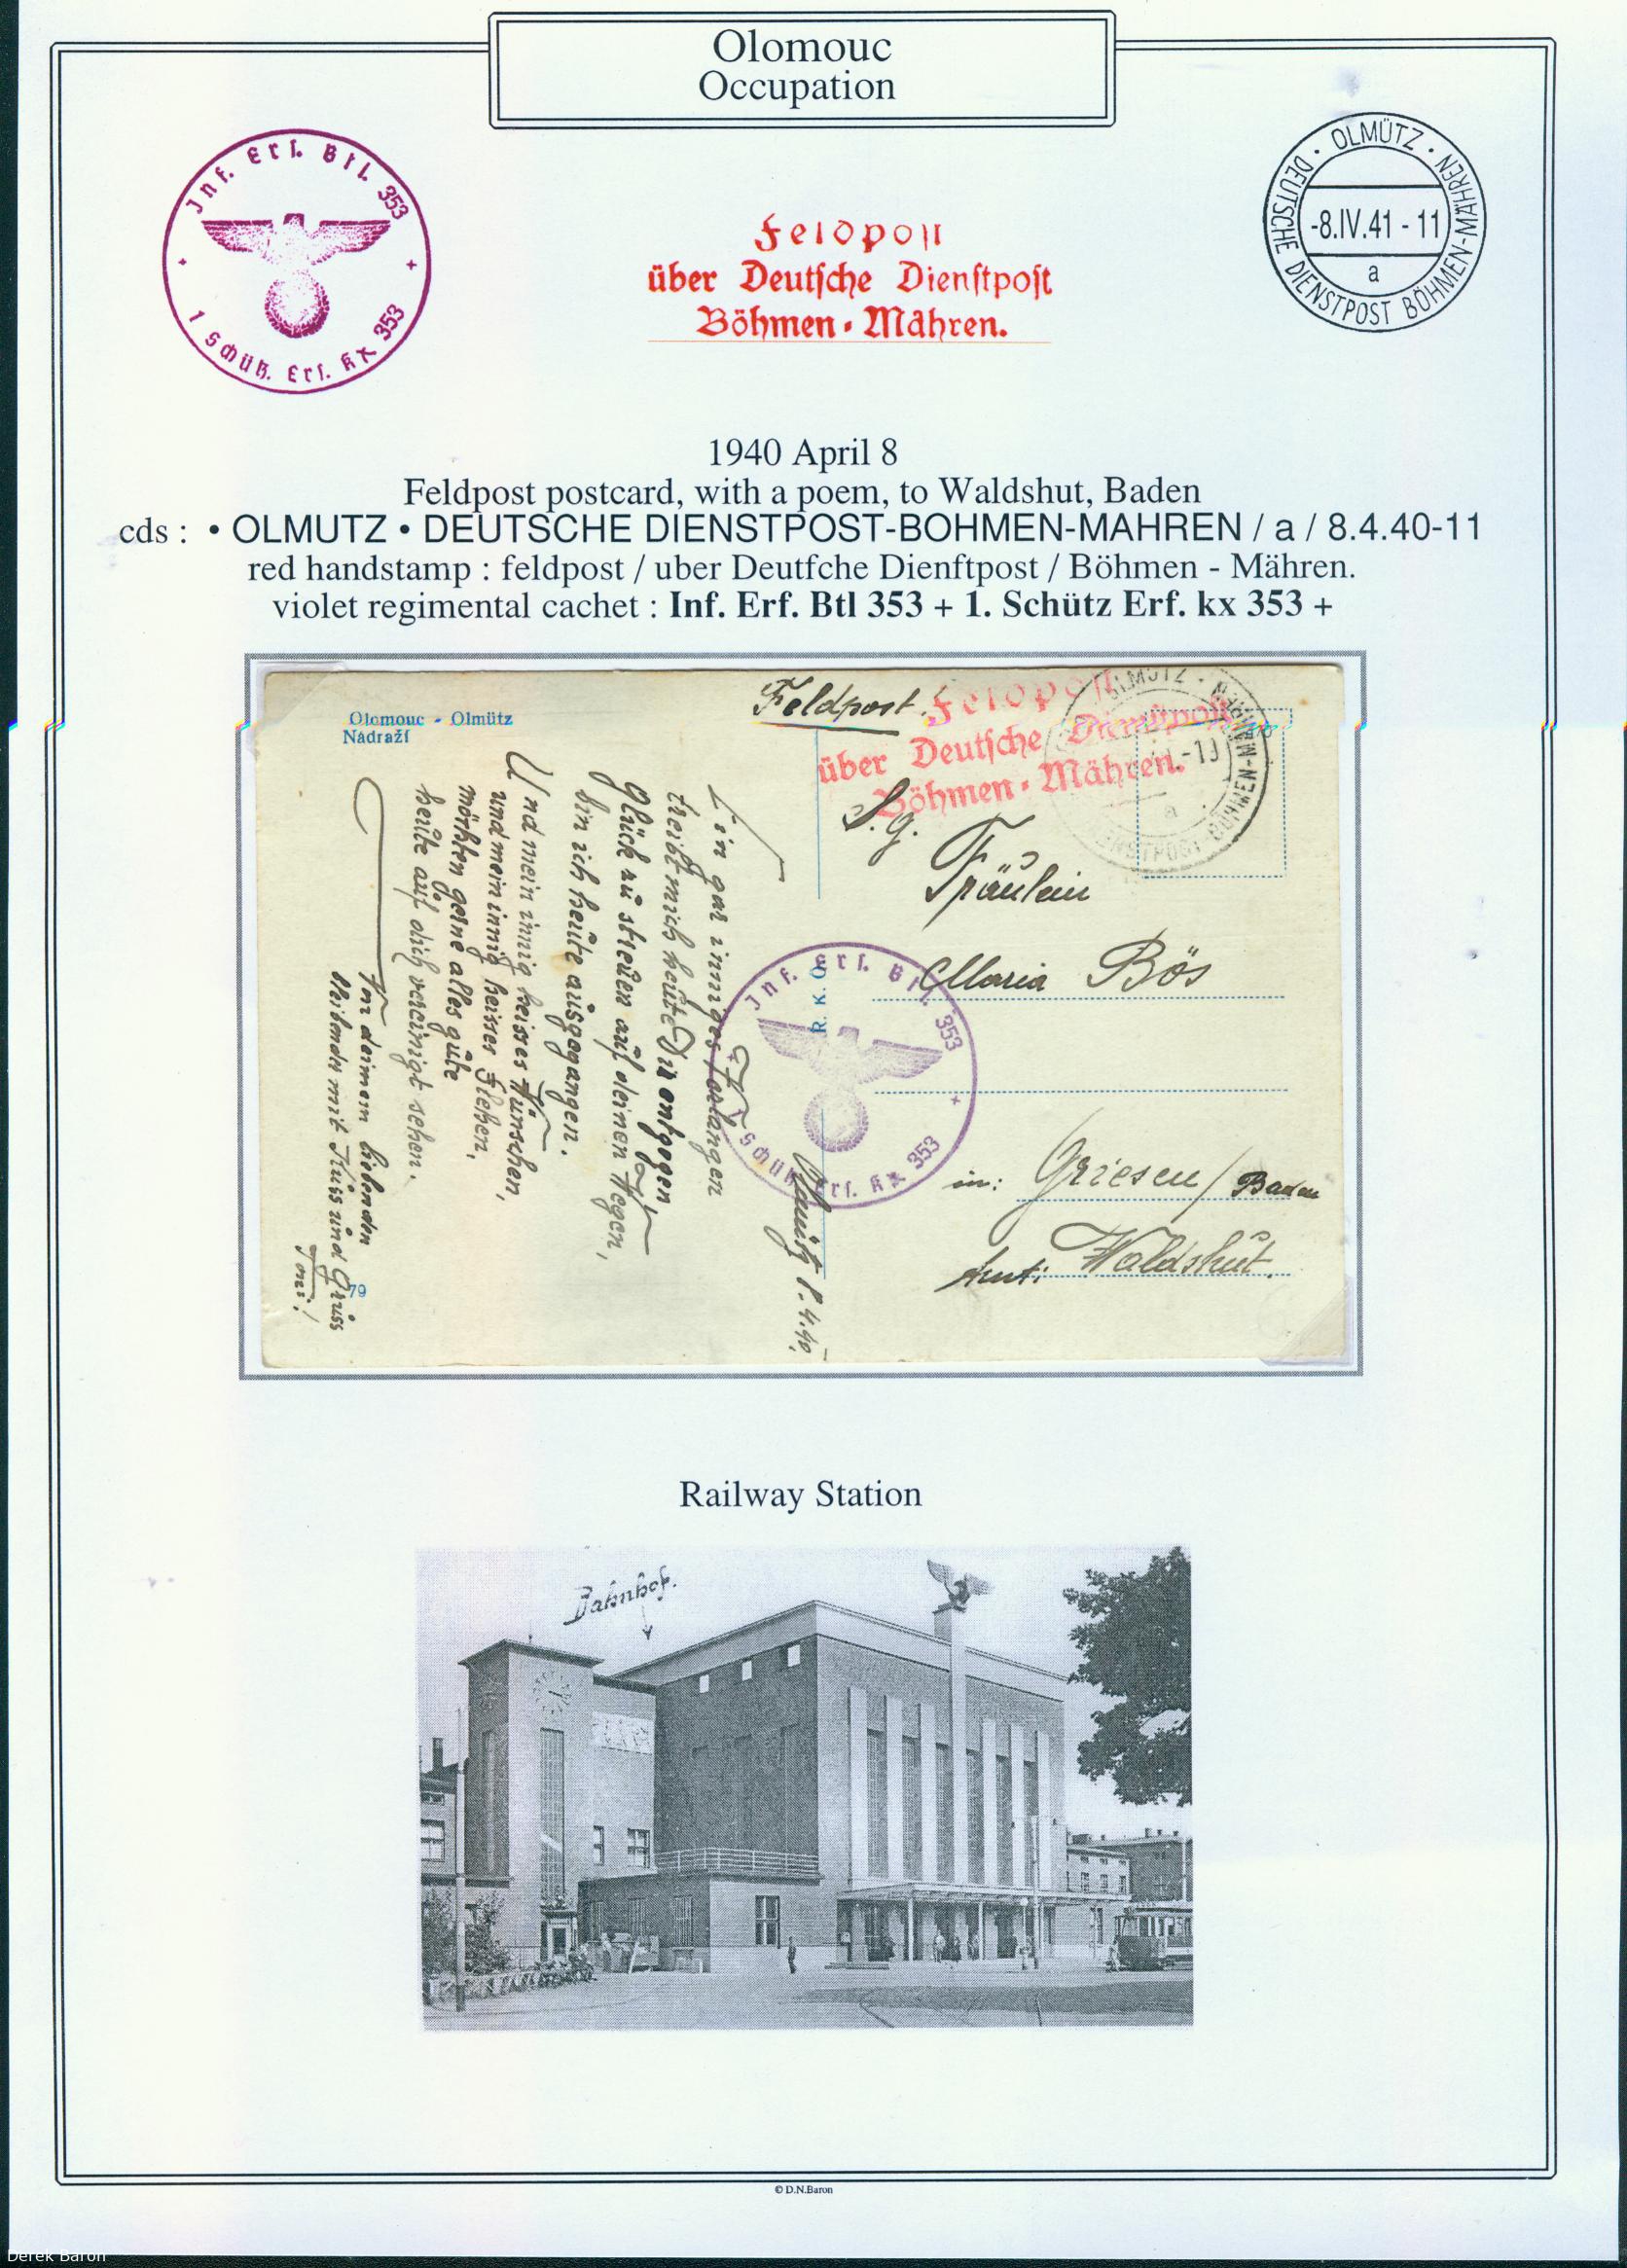 Olomouc
Occupation
Inf. Ers. Btl. 353
+ 1 Schütz. Ers. Kx 353 +
Feldpost
über Deutsche Dienstpost
Böhmen-Mähren.
• OLMÜTZ •
DEUTSCHE DIENSTPOST BÖHMEN-MÄHREN
-8.IV.41-11
a
1940 April 8
Feldpost postcard, with a poem, to Waldshut, Baden
cds : • OLMUTZ • DEUTSCHE DIENSTPOST-BOHMEN-MAHREN / a / 8.4.40-11
red handstamp : feldpost / uber Deutfche Dienftpost / Böhmen - Mähren.
violet regimental cachet : Inf. Erf. Btl 353 + 1. Schütz Erf. kx 353 +
Olomouc - Olmütz
Nádraží
Feldpost.
Feldpost
über Deutsche Dienstpost
Böhmen-Mähren.
OLMÜTZ •
BÖHMEN-MÄHREN
a
S.g.
Fräulein
Maria Bös
in: Griesen/Baden
Amt: Waldshut.
Inf. Ers. Btl. 353
+ Schütz. Ers. Kx 353 +
R. K. O.
Olmütz 8.4.40.
Ein gar inniges Verlangen
treibt mich heute Dir entgegen
Glück zu streuen auf deinen Wegen,
bin ich heute ausgegangen.
Und mein innig heisses Wünschen,
und mein innig heisses Flehen,
möchten gerne alles gute
heute auf dich vereinigt sehen.
Von deinem liebenden
bleibenden mit Kuss und Gruss
Toni!
79
Railway Station
Bahnhof.
© D.N.Baron
Derek Baron